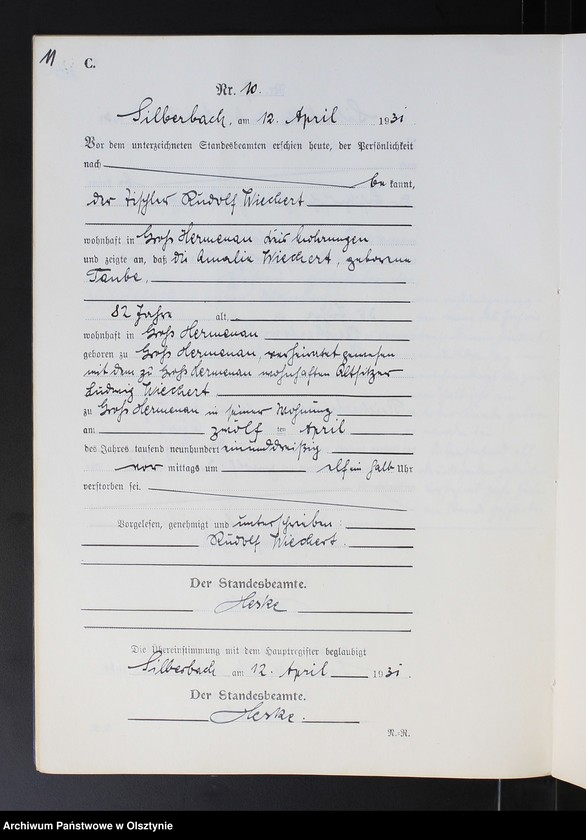 11
C.
Nr. 10.
Silberbach, am 12. April 1931
Vor dem unterzeichneten Standesbeamten erschien heute, der Persönlichkeit
nach
be kannt,
der Tischler Rudolf Wiechert
wohnhaft in Groß Hermenau Kreis Mohrungen
und zeigte an, daß die Amalie Wiechert, geborene
Taube,
82 Jahre alt,
wohnhaft in Groß Hermenau
geboren zu Groß Hermenau, verheiratet gewesen
mit dem zu Groß Hermenau wohnhaften Altsitzer
Ludwig Wiechert
zu Groß Hermenau in seiner Wohnung
am zwölf ten April
des Jahres tausend neunhundert einunddreißig
vor mittags um elfeinhalb Uhr
verstorben sei.
Vorgelesen, genehmigt und unterschrieben:
Rudolf Wiechert.
Der Standesbeamte.
Heske
Die Übereinstimmung mit dem Hauptregister beglaubigt
Silberbach am 12. April 1931.
Der Standesbeamte.
Heske.
N.-R.
Archiwum Państwowe w Olsztynie